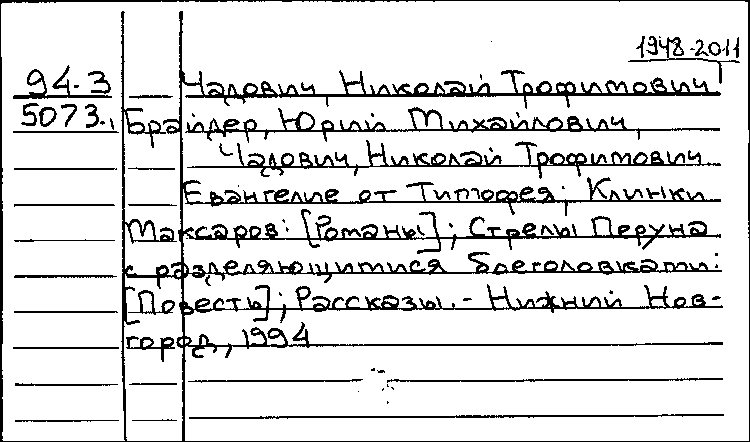 1948-2011
94-3 Чадович, Николай Трофимович
5073. Брайдер, Юрий Михайлович,
Чадович, Николай Трофимович
Евангелие от Тимофея; Клинки
Максаров: [Романы]; Стрелы Перуна
с разделяющимися боеголовками:
[Повесть]; Рассказы. - Нижний Нов-
город, 1994